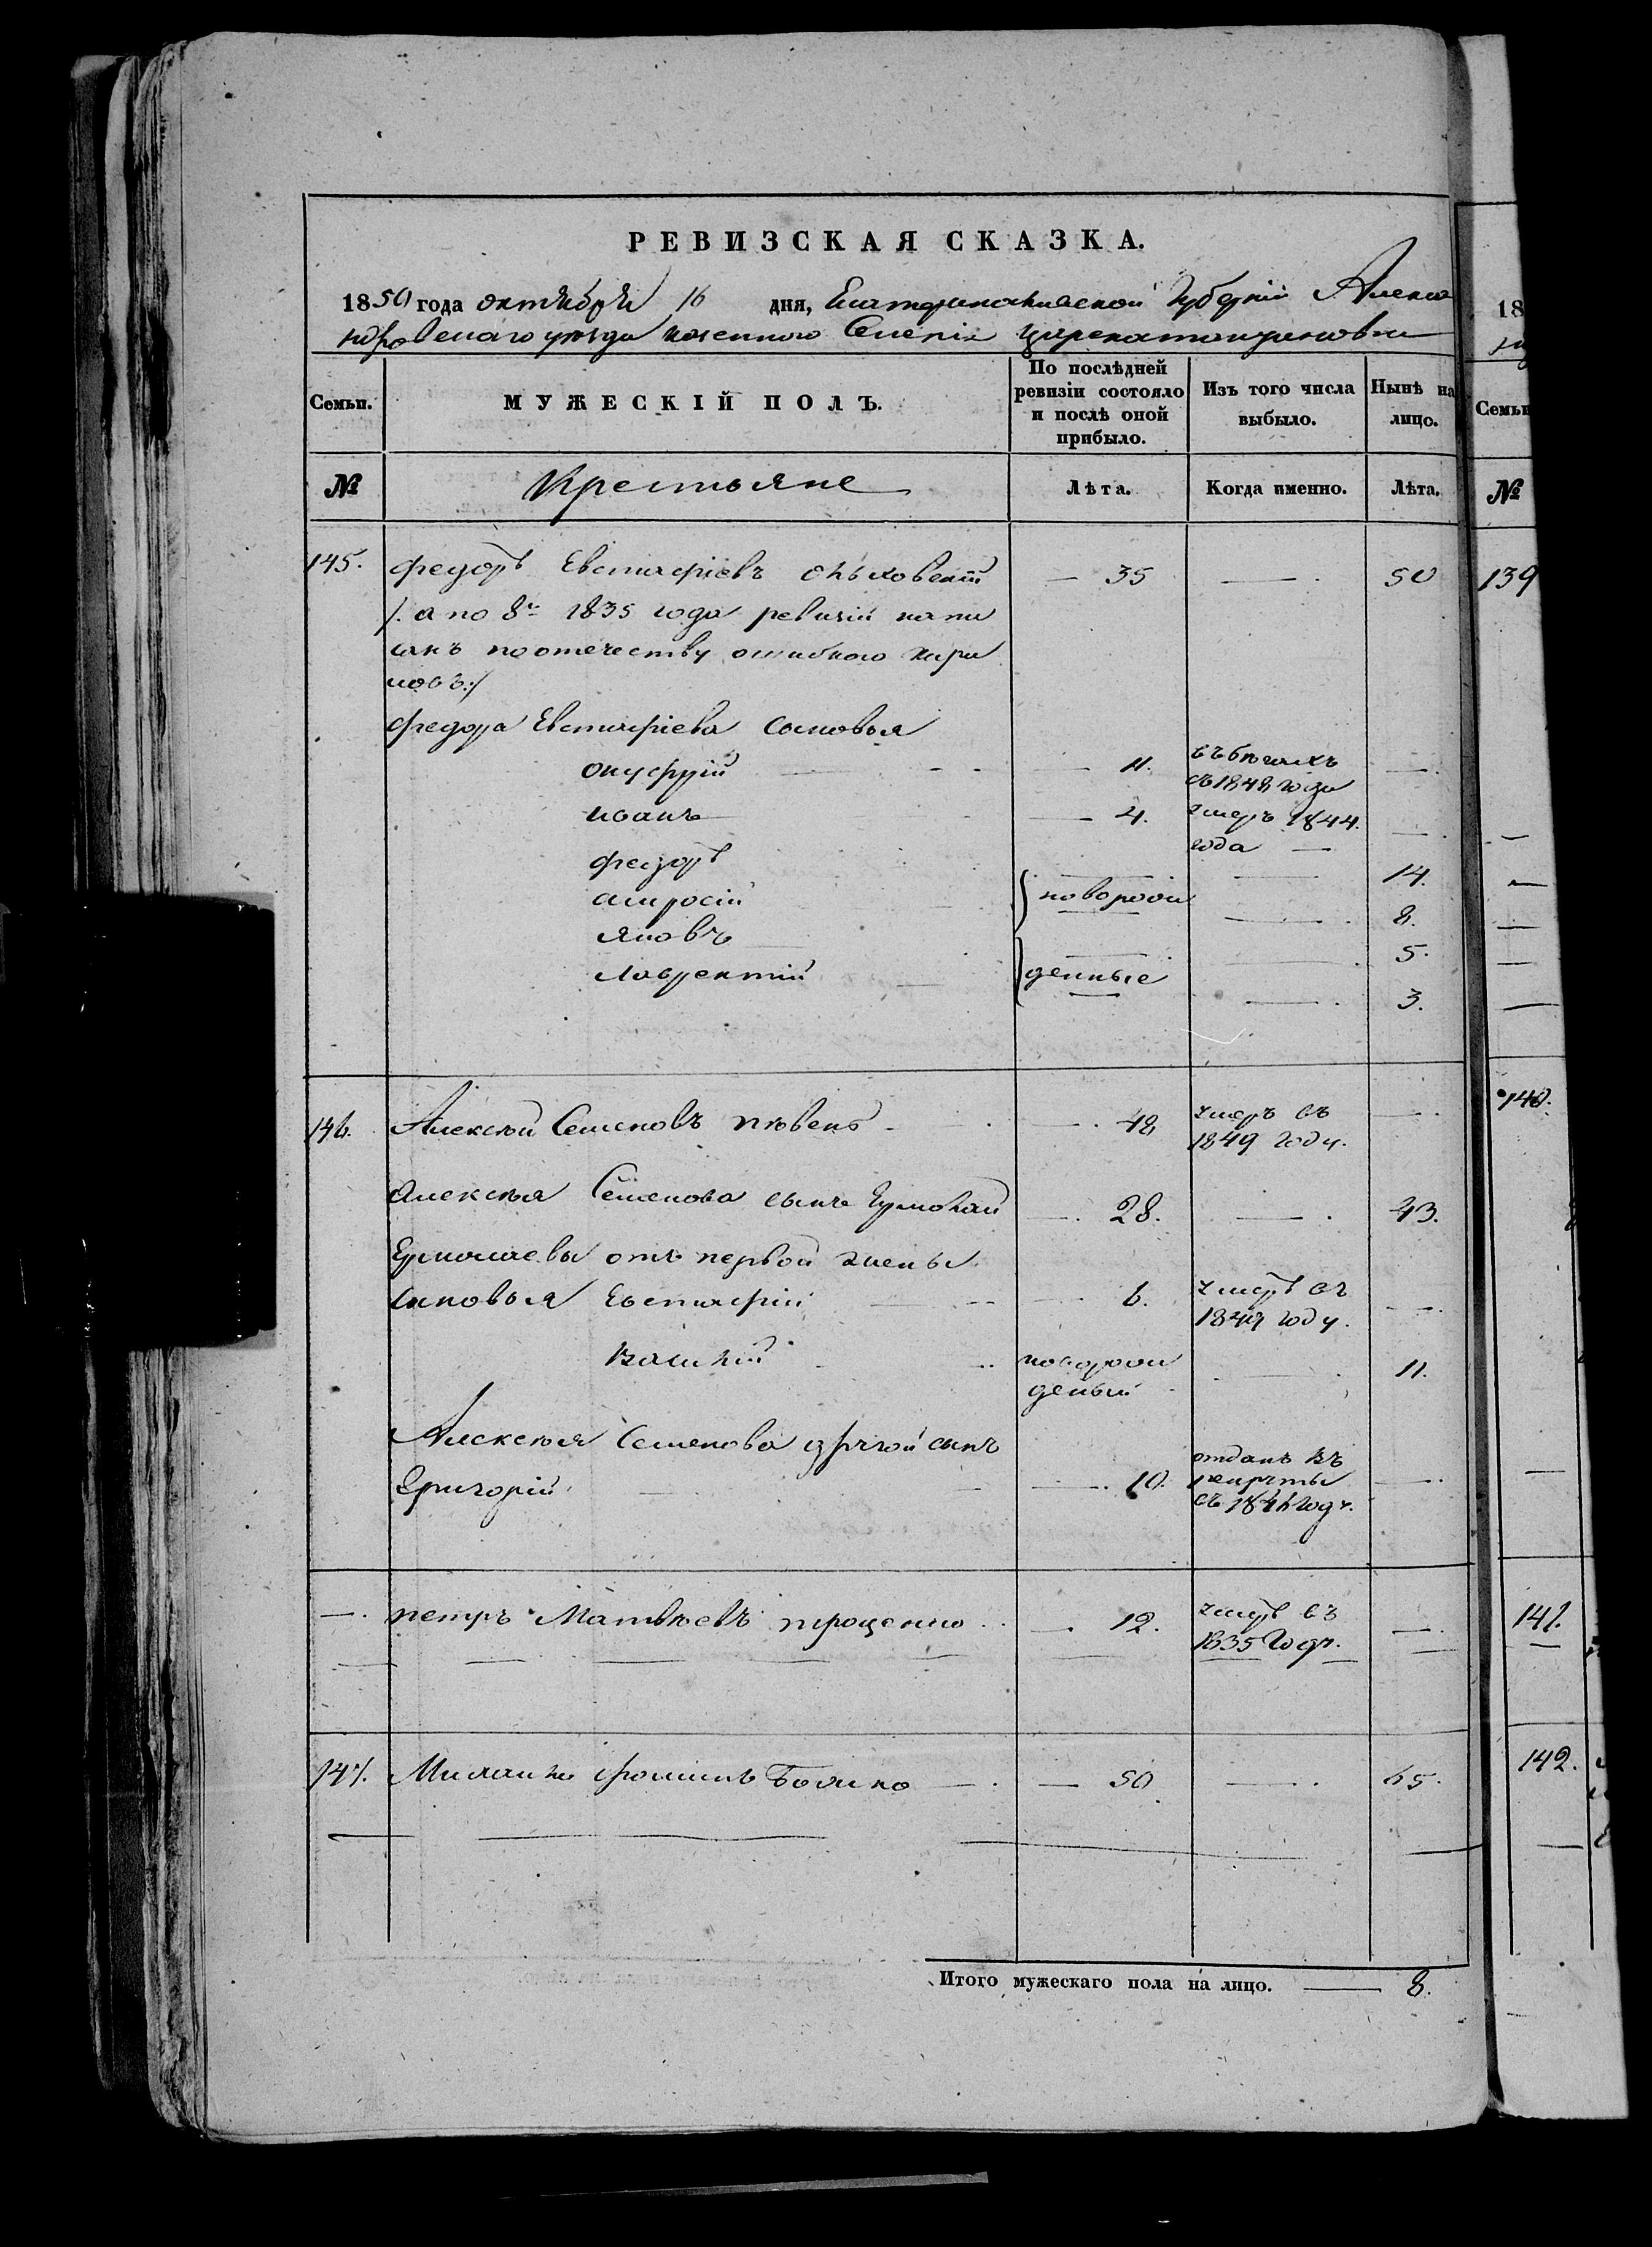 РЕВИЗСКАЯ СКАЗКА.
1850 года октября 16 дня, Екатеринославской Губерніи Алекса
ндровскаго уѣзда казенного Селенія Цареконстантиновки
Семьи.
МУЖЕСКІЙ ПОЛЪ.
По послѣдней ревизіи состояло и послѣ оной прибыло.
Изъ того числа выбыло.
Нынѣ на лицо.
№
Крестьяне
Лѣта.
Когда именно.
Лѣта.
145. Федоръ Евстафіевъ — 35 — . 50
/. а по 8й 1835 года ревизіи напи
санъ поотечеству ошибкого Кири
ловъ:/
Федора Евстафіева сыновья
Онуфрій — 11. въ бѣгахъ съ 1848 года — .
Иванъ — 4. умеръ 1844. года — — .
Федоръ — 14.
Амросій новорож — . 8.
Яковъ — . 5.
Лаврентій денные — . 3.
146. Алексѣй Семеновъ — . 48 умеръ въ 1849 году. — .
Алексѣя Семенова сынъ Ермолай — . 28. — . 43.
Ермолаевы отъ первой жены
сыновья Евстафій — 6. умеръ въ 184 году. — .
Василій новорож деный — . 11.
Алексѣя Семенова другой сынъ
Григорій — . 10. отданъ въ рекруты въ 184 году. — .
— . Петръ Матвѣевъ Троценко — . 12. умеръ въ 1835 году. — .
147. Фоминъ Бойко — . — 50. — . 65.
Итого мужескаго пола на лицо. — 8.
18
Семьи
№
139
140.
141.
142.